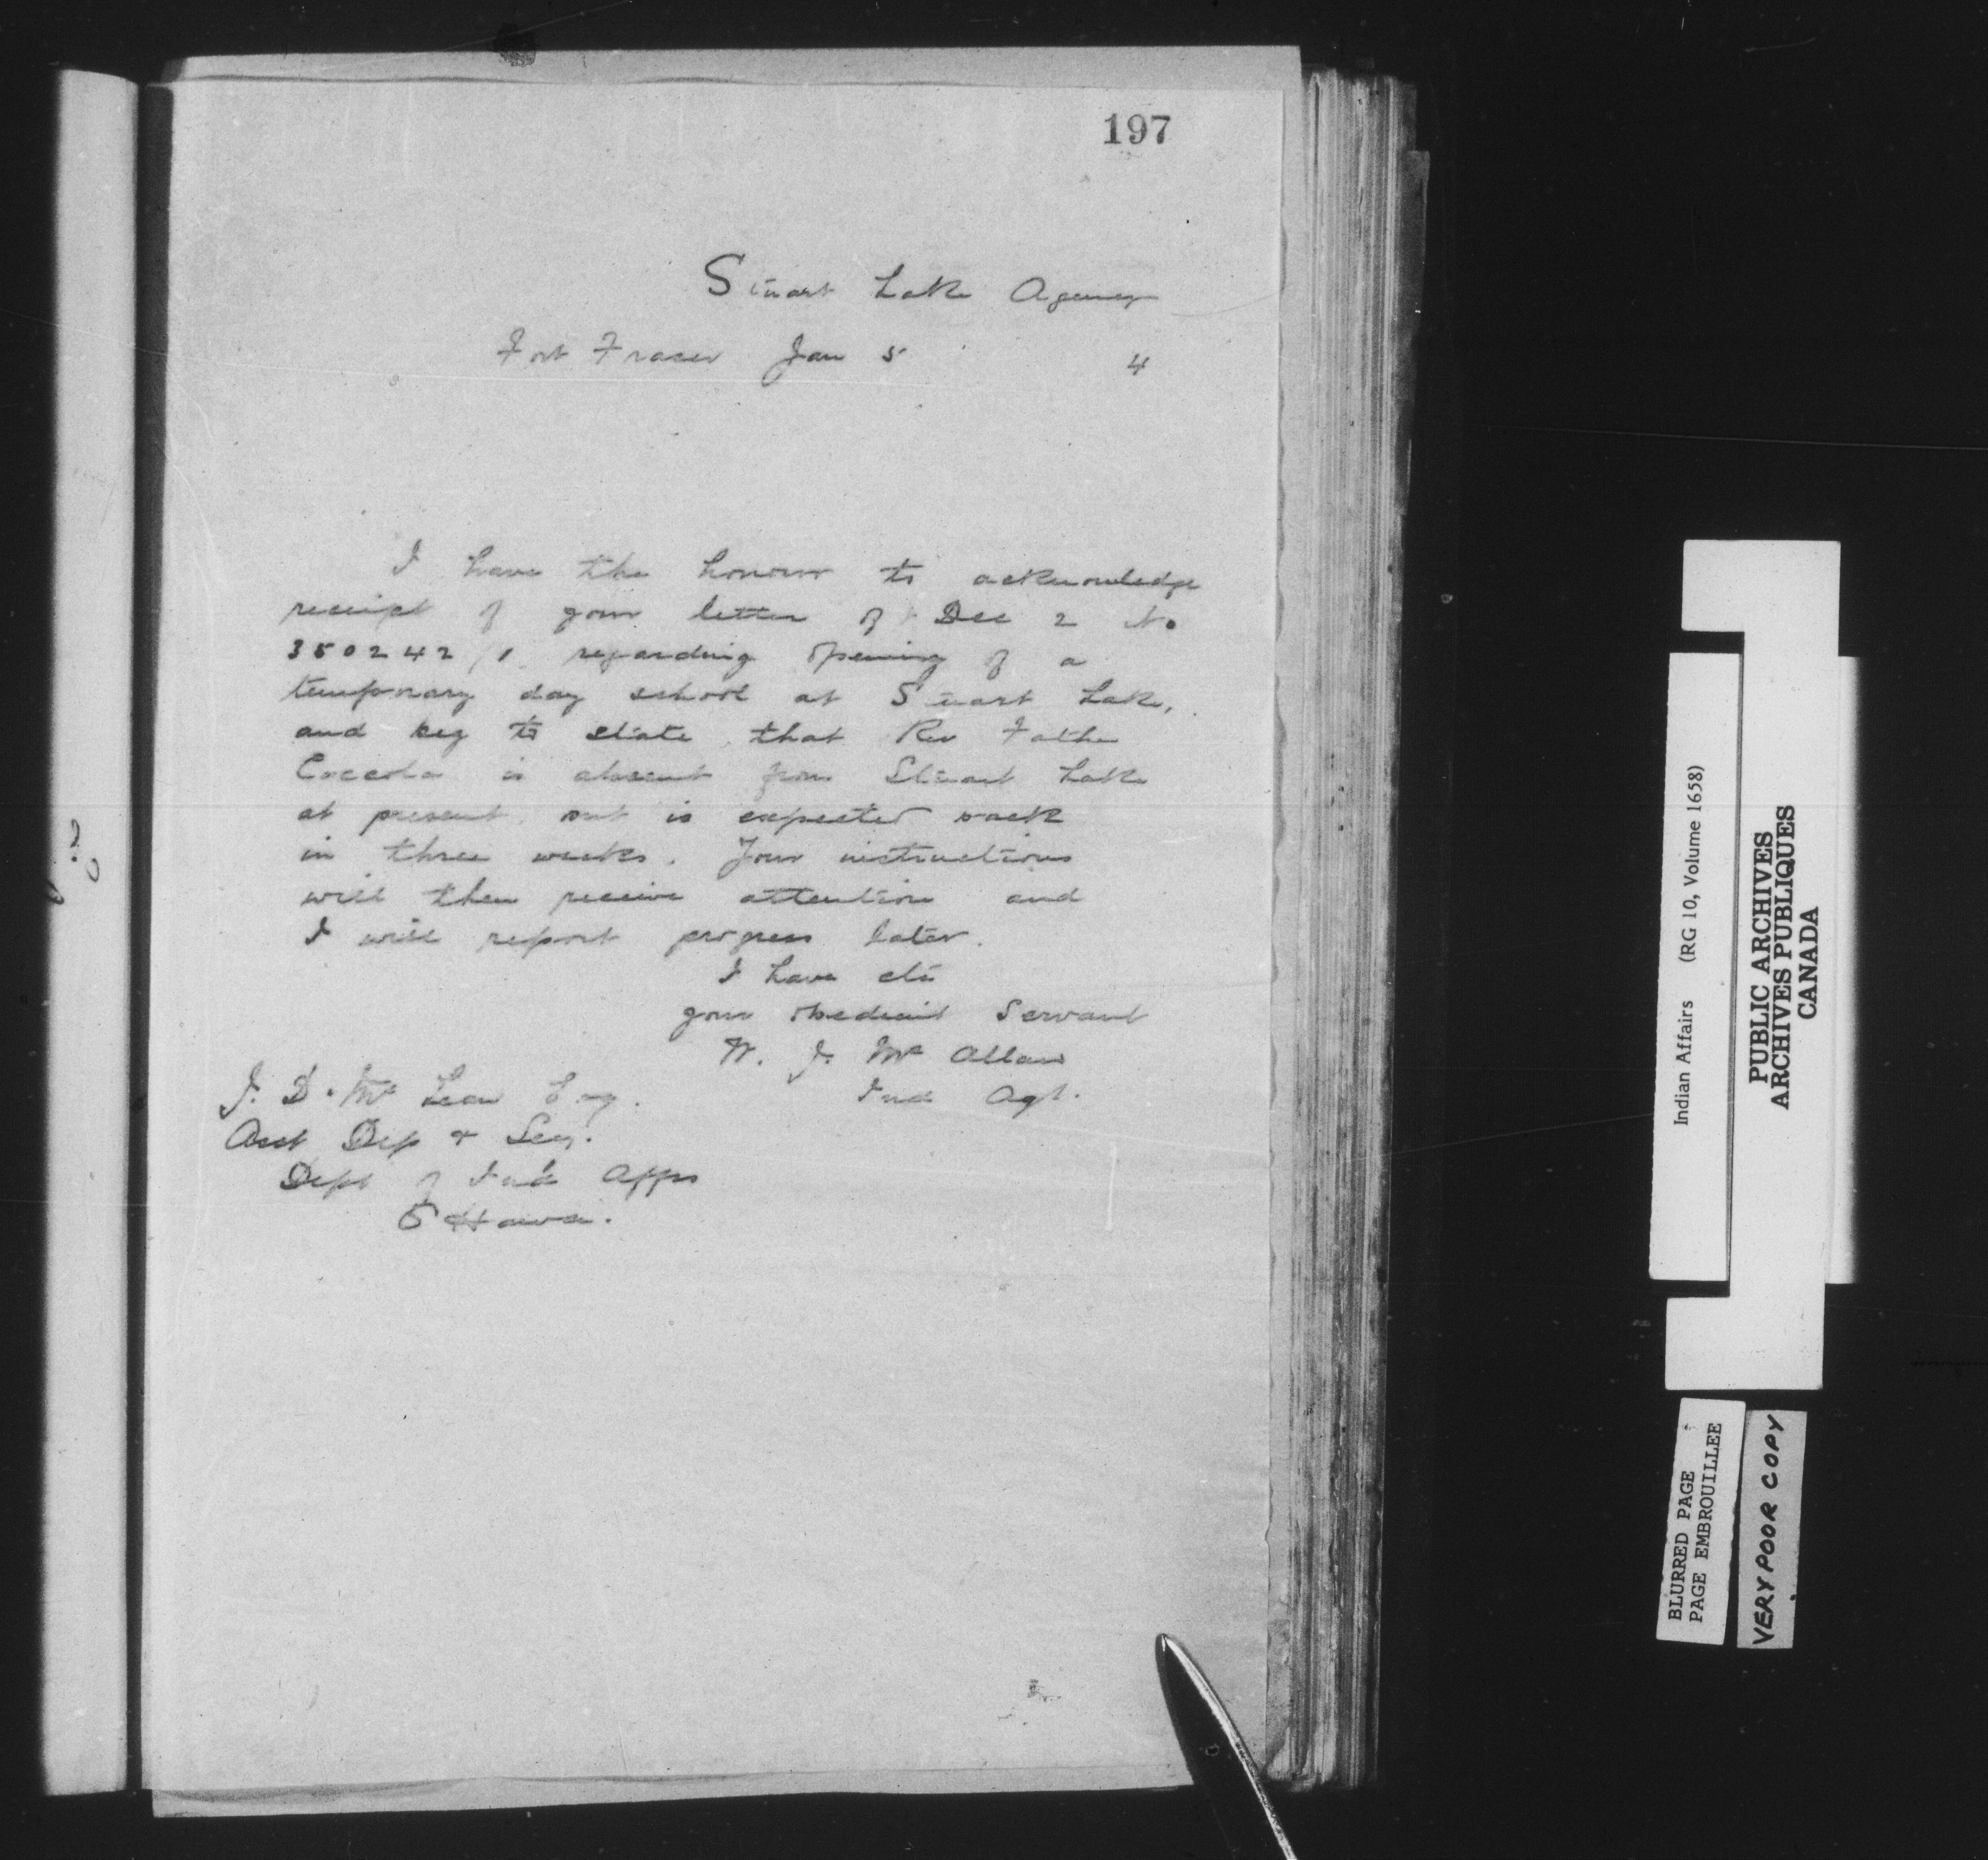 197
Stuart Lake Agency
Fort Fraser Jan 5 4
I have the honour to acknowledge
receipt of your letter of Dec 2 No
350242/1 regarding opening of a
temporary day school at Stuart Lake,
and beg to state that Rev Father
Coccola is absent from Stuart Lake
at present but is expected back
in three weeks. Your instructions
will then receive attention and
I will report progress later.
I have etc
your obedient Servant
W. J. Mc Allan
Ind Agt.
J. D. Mc Lean Esq.
Asst Dep & Secy.
Dept of Ind Affrs
Ottawa.
Indian Affairs (RG 10, Volume 1658)
PUBLIC ARCHIVES
ARCHIVES PUBLIQUES
CANADA
BLURRED PAGE
PAGE EMBROUILLEE
VERY POOR COPY